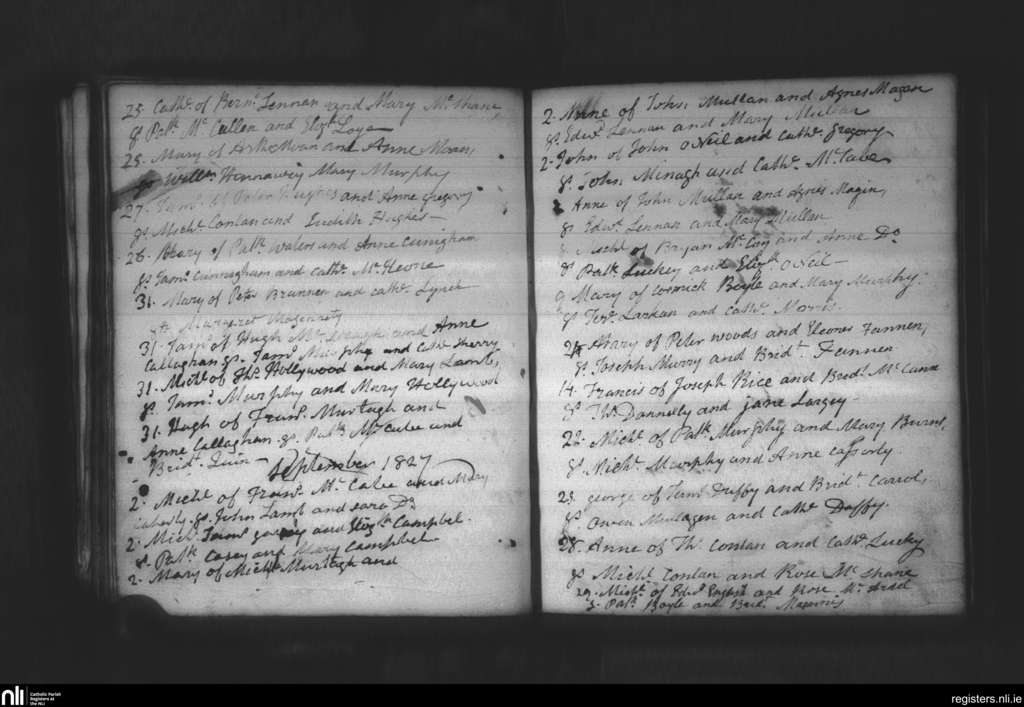 25. Cathe. of Bernd. Lennan and Mary Mc. Shane
gs. Patk. Mc. Cullen and Elizth. Loye
25. Mary of Arthr. Moan and Anne Moan,
gs. Willm. Hannawey Mary Murphy
27. Jams. of Peter Hughes and Anne gregory
gs. Michl. Conlan and Judith Hughes
26. Peary of Patk. Waters and Anne Cunigham
gs. Jams. Cunnagham and Cathe. Mc. Keone
31. Mary of Peter Brannen and Cathe. Lynch
gs. Margaret
31. Jams. of Hugh and Anne
Callaghan gs. Jams. Murphy and Cathe. Sherry
31. Michl. of Ths. Hollywood and Mary Lamb,
gs. Jams. Murphy and Mary Hollywood
31. Hugh of Frans. Murtagh and
Anne Callaghan. gs. Patk. Mc. Cabe and
Bridt. Quin
September 1827
2. Michl. of Frans. Mc. Cabe and Mary
gs. John Lamb and sara Do.
2. Mich. and Elizth. Campbel.
gs. Patk. Casey and Mary Campbel
2. Mary of Michl. Murtagh and
2. Anne of John Mullan and Agnes Magan
gs. Edwd. Lennan and Mary Mullan
2. John of John O Neil and Cathe. Gregory
gs. John Minagh and Cathe. Mc. Cabe
2 Anne of John Mullan and Agnes Magin,
gs Edwd. Lennan and Mary Mullan
Michl. of Bryan Mc. Coy and Anne Do.
gs Patk. Luckey and Elizth. O Neil
9 Mary of Cormick Boyle and Mary Murphy
gs Ter. Larkan and Cathe. Morris.
24 Mary of Peter Woods and Eleonr. Fannen,
gs. Joseph Murry and Bridt. Fannen
14. Francis of Joseph Rice and Bridt. Mc. Cann
gs Ths. Donnelly and Jane Largey
22. Michl. of Patk. Murphy and Mary Burns,
gs. Michl. Murphy and Anne Casserly.
23. george of Jams. Duffy and Bridt. Carrol,
gs. Owen and Cathe. Duffy.
28. Anne of Ths. Conlan and Cathe. Lucky
gs Michl. Conlan and Rose Mc. Shane
29. Michl. of Edwd. English and Rose Mc. Ardel
gs. Patk. Boyle and Bridt.
nli
Catholic Parish
Registers at
the NLI
registers.nli.ie